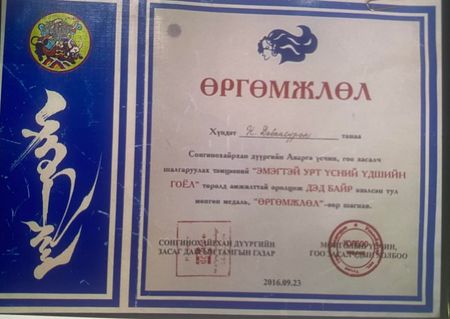 ӨРГӨМЖЛӨЛ
Хүндэт Н. Даваасүрэн танаа
Сонгинохайрхан дүүргийн Аварга үсчин, гоо засалч
шалгаруулах тэмцээний "ЭМЭГТЭЙ УРТ ҮСНИЙ ҮДШИЙН
ГОЁЛ" төрөлд амжилттай оролцож ДЭД БАЙР эзэлсэн тул
мөнгөн медаль, "ӨРГӨМЖЛӨЛ"-өөр шагнав.
СОНГИНОХАЙРХАН ДҮҮРГИЙН
ЗАСАГ ДАРГЫН ТАМГЫН ГАЗАР
МОНГОЛЫН ҮСЧИН,
ГОО ЗАСАЛЧДЫН ХОЛБОО
2016.09.23